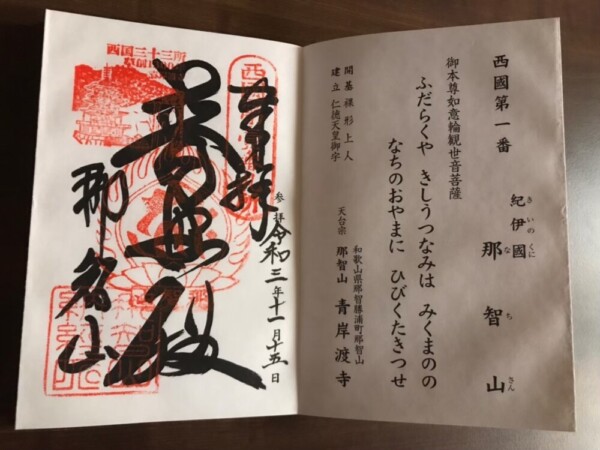 西國第一番
紀伊國 那智山
きいのくに な ち さん
御本尊如意輪観世音菩薩
ふだらくや きしうつなみは みくまのの
なちのおやまに ひびくたきつせ
開基 裸形上人
建立 仁徳天皇御宇
和歌山県那智勝浦町那智山
天台宗 那智山 青岸渡寺
奉拝
参拝 令和三年十一月十五日
普照殿
那智山
西国三十三所
草創1300年